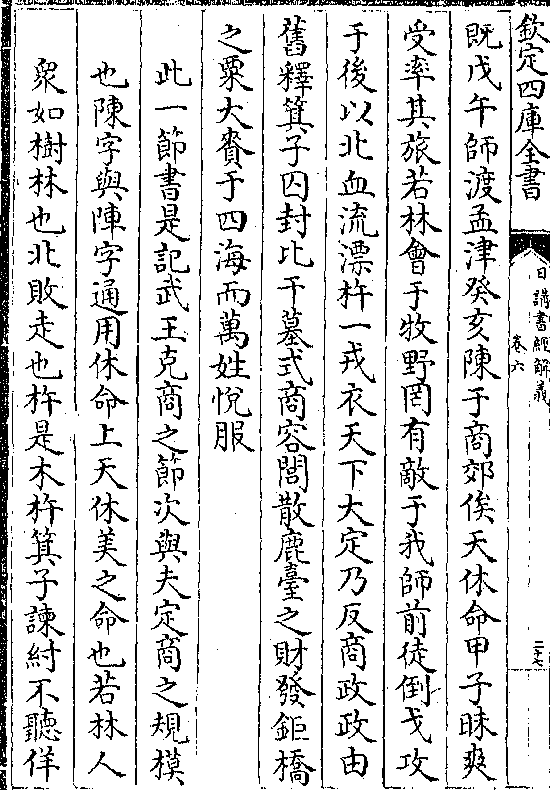 欽定四庫全書
日講書經解義
卷六
三七
既戊午師渡孟津癸亥陳于商郊俟天休命甲子昧爽
受率其旅若林會于牧野罔有敵于我師前徒倒戈攻
于後以北血流漂杵一戎衣天下大定乃反商政政由
舊釋箕子囚封比干墓式商容閭散鹿臺之財發鉅橋
之粟大賚于四海而萬姓悅服
此一節書是記武王克商之節次與夫定商之規模
也陳字與陣字通用休命上天休美之命也若林人
衆如樹林也北敗走也杵是木杵箕子諫紂不聽佯